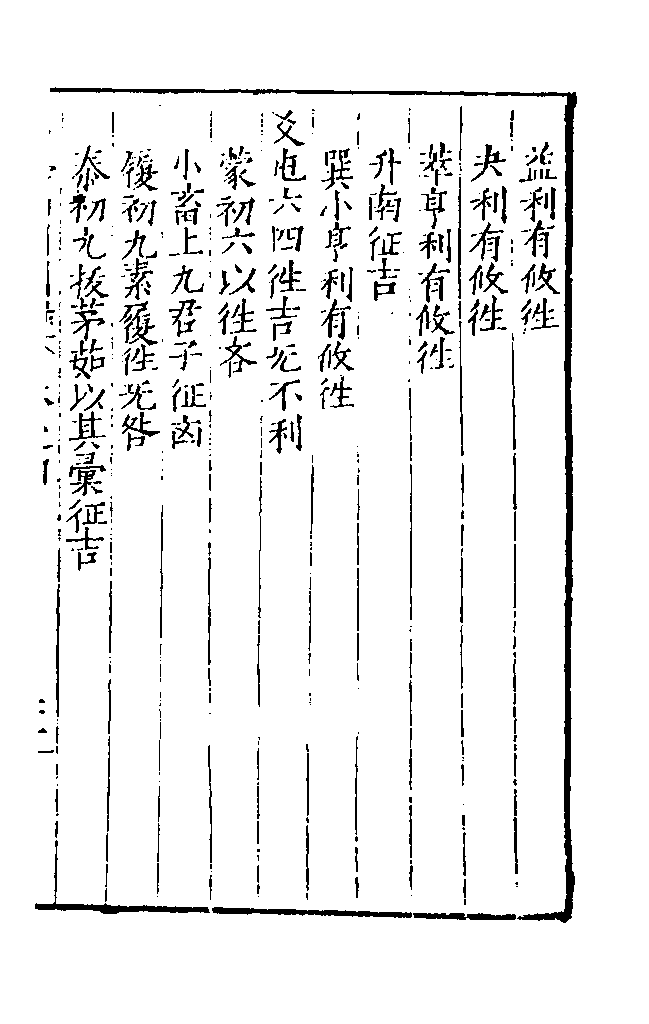 益利有攸徃
夬利有攸徃
萃亨利有攸徃
升南征吉
巽小亨利有攸徃
爻屯六四徃吉无不利
蒙初六以徃吝
小畜上九君子征凶
履初九素履徃无咎
泰初九拔茅茹以其彙征吉